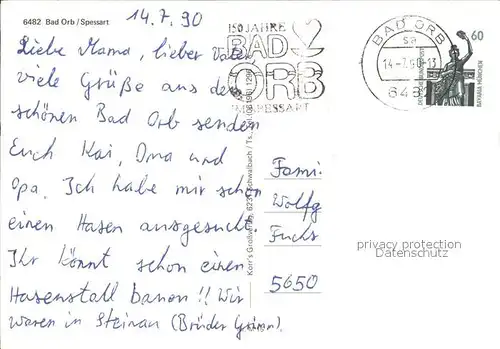 6482 Bad Orb / Spessart
14.7.90
Liebe Mama, lieber Vater
viele Grüße aus dem
schönen Bad Orb senden
Euch Kai, Oma und
Opa. Ich habe mir schon
einen Hasen ausgesucht.
Ihr könnt schon einen
Hasenstall bauen!! Wir
waren in Steinau (Brüder Grimm).
150 JAHRE
BAD
ORB
IM SPESSART
BAD ORB
sa
14-7.90-13
6482
60
DEUTSCHE BUNDESPOST
BAVARIA MÜNCHEN
Korr's Großverlag, 623 Eschwalbach / Ts.
Fami.
Wolfg
Fuchs
5650
privacy protection
Datenschutz